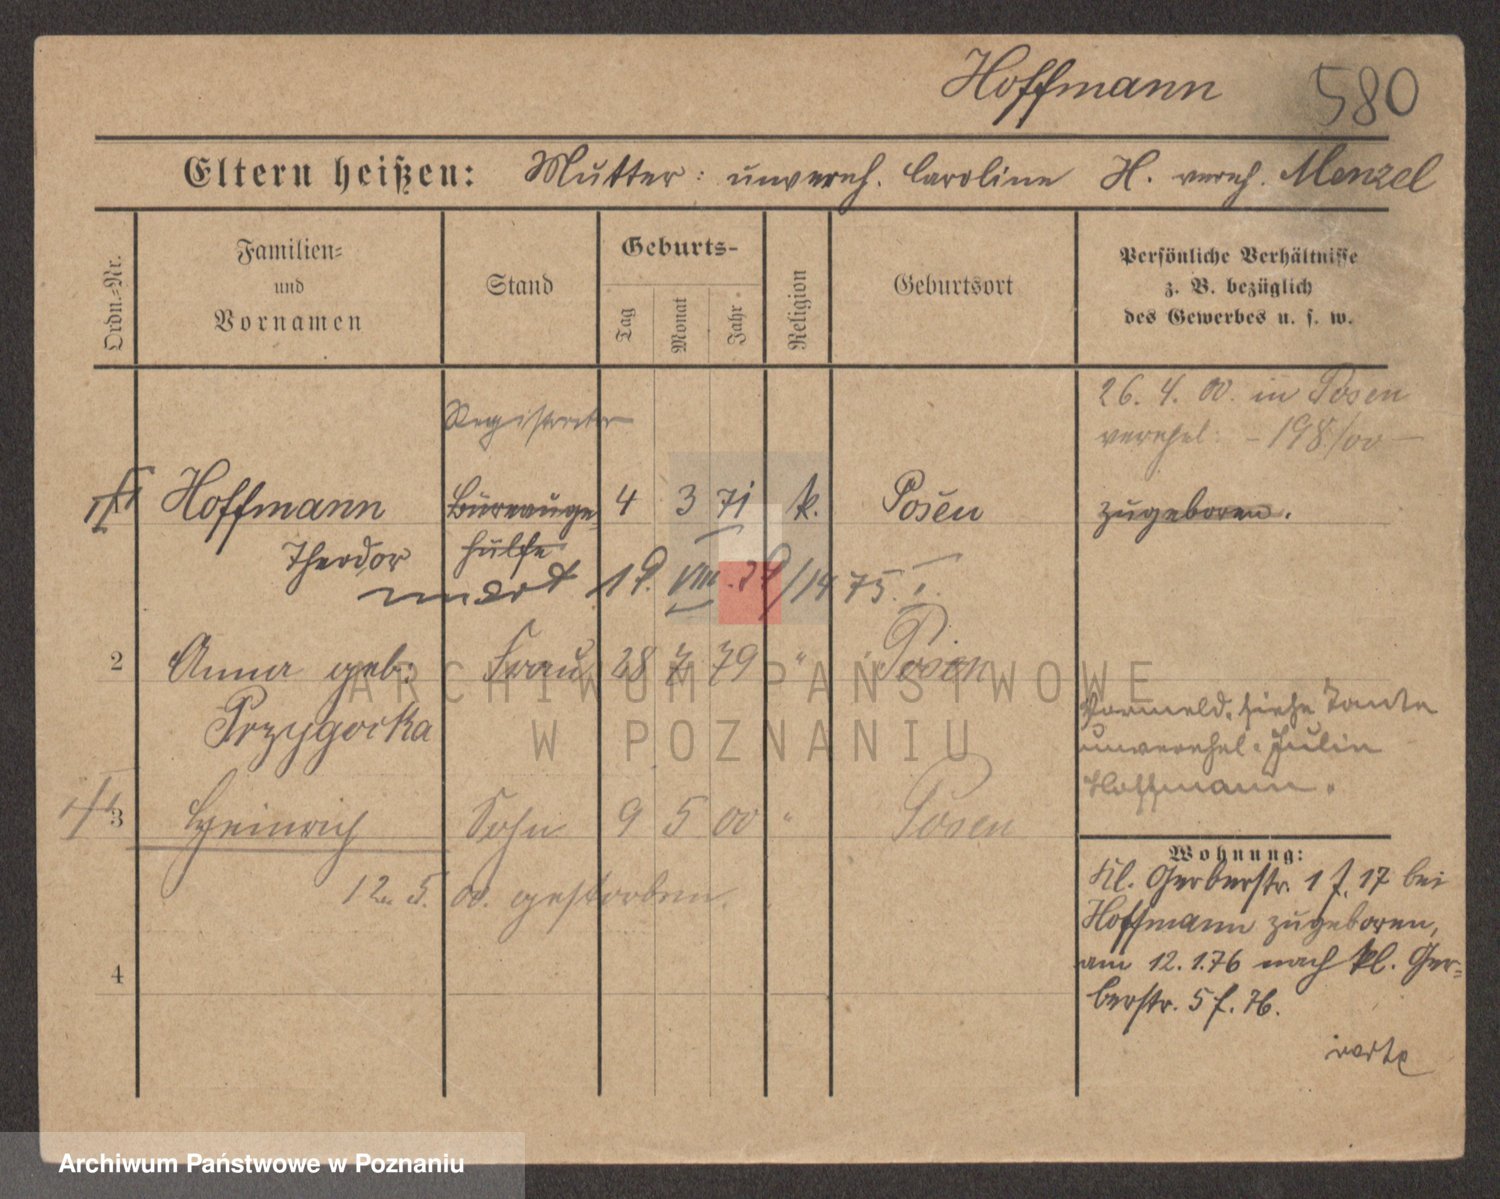 Hoffmann 580
Eltern heißen: Mutter: unvereh. Caroline H. vereh. Menzel
Ordn.-Nr.
Familien-
und
Vornamen
Stand
Geburts-
Tag
Monat
Jahr
Religion
Geburtsort
Persönliche Verhältnisse
z. B. bezüglich
des Gewerbes u. s. w.
26. 4. 00. in Posen
verehel: - 198/00 -
Registrator
Hoffmann Büreauge- 4 3 71 k. Posen zugeboren.
Theodor hülfe
2 Anna geb: Frau 28 7 79 " Posen
Przygocka
Vormeld. siehe Tante
unverehel. Julia
Hoffmann.
3 Heinrich Sohn 9 5 00 " Posen
12. 5. 00. gestorben.
4
Wohnung:
Kl. Gerberstr. 1 f. 17 bei
Hoffmann zugeboren,
am 12.1.76 nach kl. Ger-
berstr. 5 f. 76.
verte
ARCHIWUM PAŃSTWOWE
W POZNANIU
Archiwum Państwowe w Poznaniu